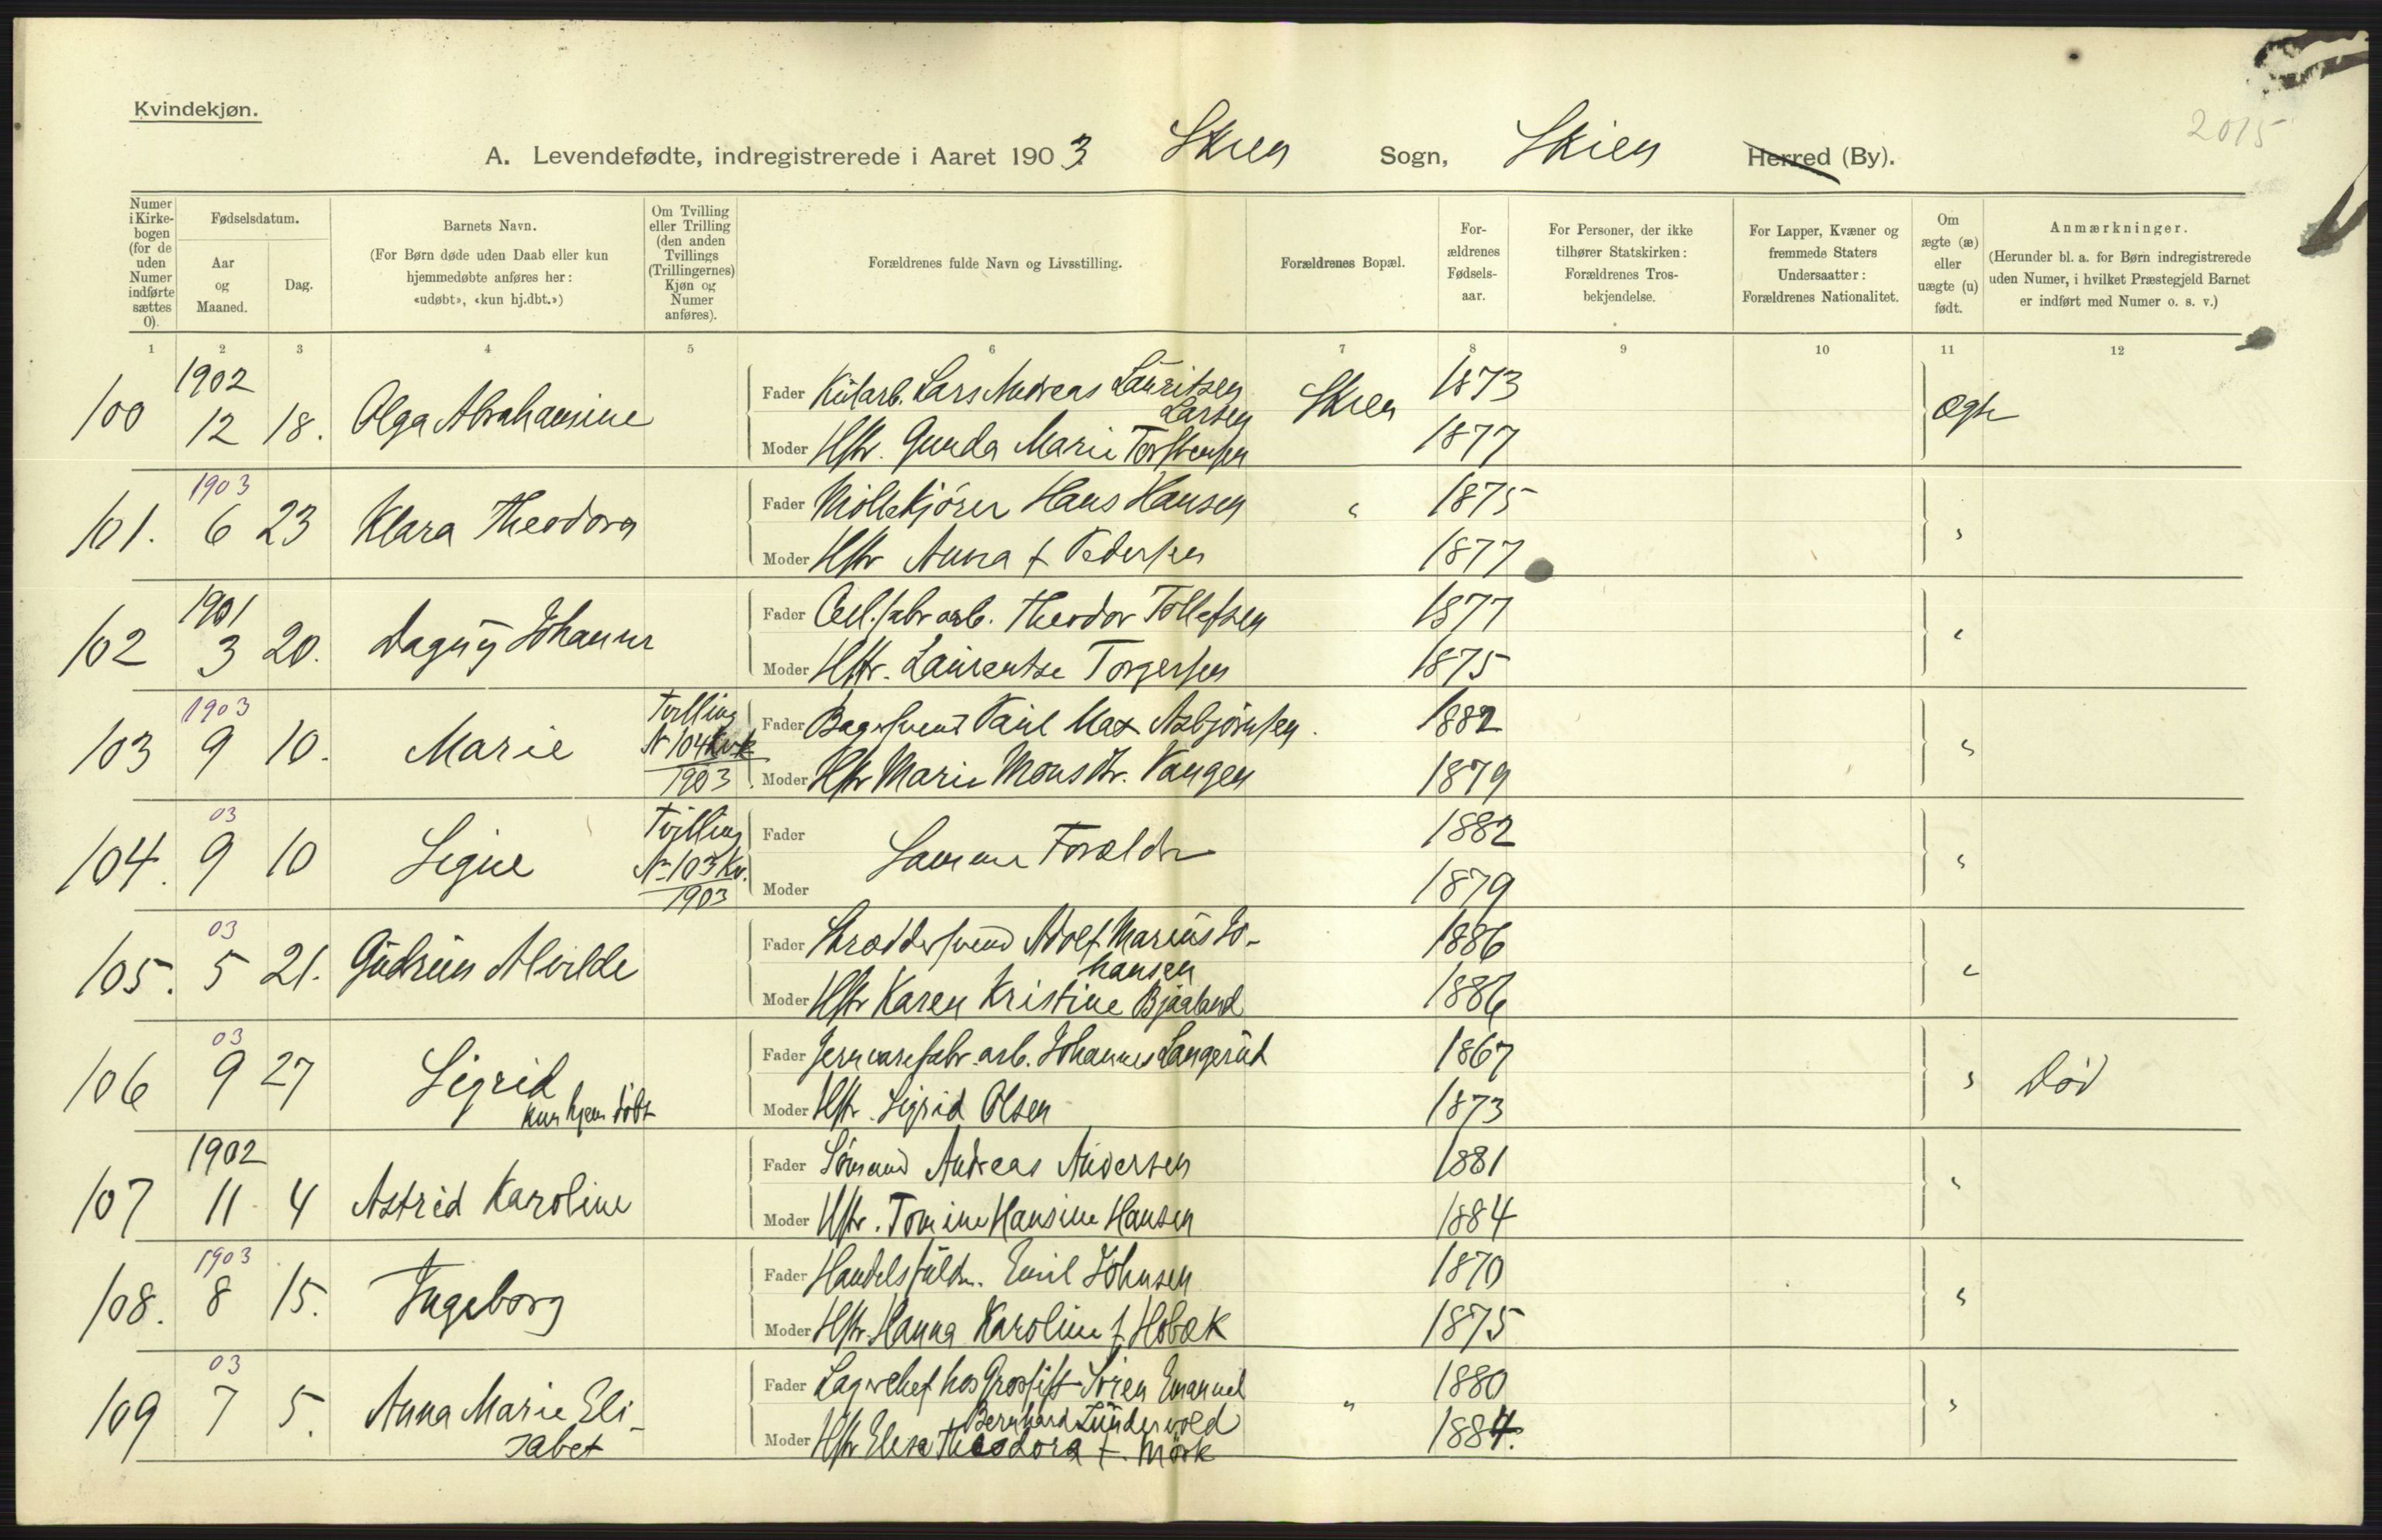 Kvindekjøn.
2015
A. Levendefødte, indregistrerede i Aaret 1903 Skien Sogn, Skien Herred (By).
Numer i Kirke- bogen (for de uden Numer indførte sættes 0).
Fødselsdatum.
Aar og Maaned.
Dag.
Barnets Navn.
(For Børn døde uden Daab eller kun
hjemmedøbte anføres her:
«udøbt», «kun hj.dbt.»)
Om Tvilling
eller Trilling
(den anden
Tvillings
(Trillingernes)
Kjøn og
Numer
anføres).
Forældrenes fulde Navn og Livsstilling.
Forældrenes Bopæl.
For-
ældrenes
Fødsels-
aar.
For Personer, der ikke
tilhører Statskirken:
Forældrenes Tros-
bekjendelse.
For Lapper, Kvæner og
fremmede Staters
Undersaatter:
Forældrenes Nationalitet.
Om
ægte (æ)
eller
uægte (u)
født.
Anmærkninger.
(Herunder bl. a. for Børn indregistrerede
uden Numer, i hvilket Præstegjeld Barnet
er indført med Numer o. s. v.)
1 2 3 4 5 6 7 8 9 10 11 12
100 1902 12 18. Olga Abrahamine
Fader Lars Andreas Lauritsen Larsen Skien 1873 ægte
Moder Hstr. Gunda Marie Torstensen 1877
101. 1903 6 23 Klara Theodora
Fader Møllekjører Hans Hansen " 1875 "
Moder Hstr Anna f Pedersen 1877
102 1901 3 20. Dagny Johanne
Fader Cell.fabr arb. Theodor Tollefsen 1877 "
Moder Hstr. Laurentse Torgersen 1875
103 1903 9 10. Marie Tvilling N 104 Kvk 1903
Fader Bagersvend Paul Max Asbjørnsen. 1882 "
Moder Hstr Marie Monsdtr. Vangen 1879
104. 03 9 10 Signe Tvilling No 103 Kv. 1903
Fader Samme Forældre 1882 "
Moder 1879
105. 03 5 21. Gudrun Alvilde
Fader Skræddersvend Adolf Marius Jo-
hansen 1886 "
Moder Hstr Karen Kristine Bjaaland 1886
106 03 9 27 Sigrid kun hjem døbt
Fader Jernvarefabr. arb. Johannes Langerud 1867 " Død
Moder Hstr. Sigrid Olsen 1873
107 1902 11 4 Astrid Karoline
Fader Sømand Andreas Andersen 1881 "
Moder Hstr. Tomine Hansine Hansen 1884
108. 1903 8 15. Ingeborg
Fader Handelsfuldm. Emil Johnsen 1870 "
Moder Hstr. Hanna Karoline f Hobæk 1875
109 03 7 5. Anna Marie Eli-
sabet
Fader Lagerchef hos Grossist Sören Emanuel
Bernhard Lundervold " 1880 "
Moder Hstr Elise Theodora f. Mørk 1884.